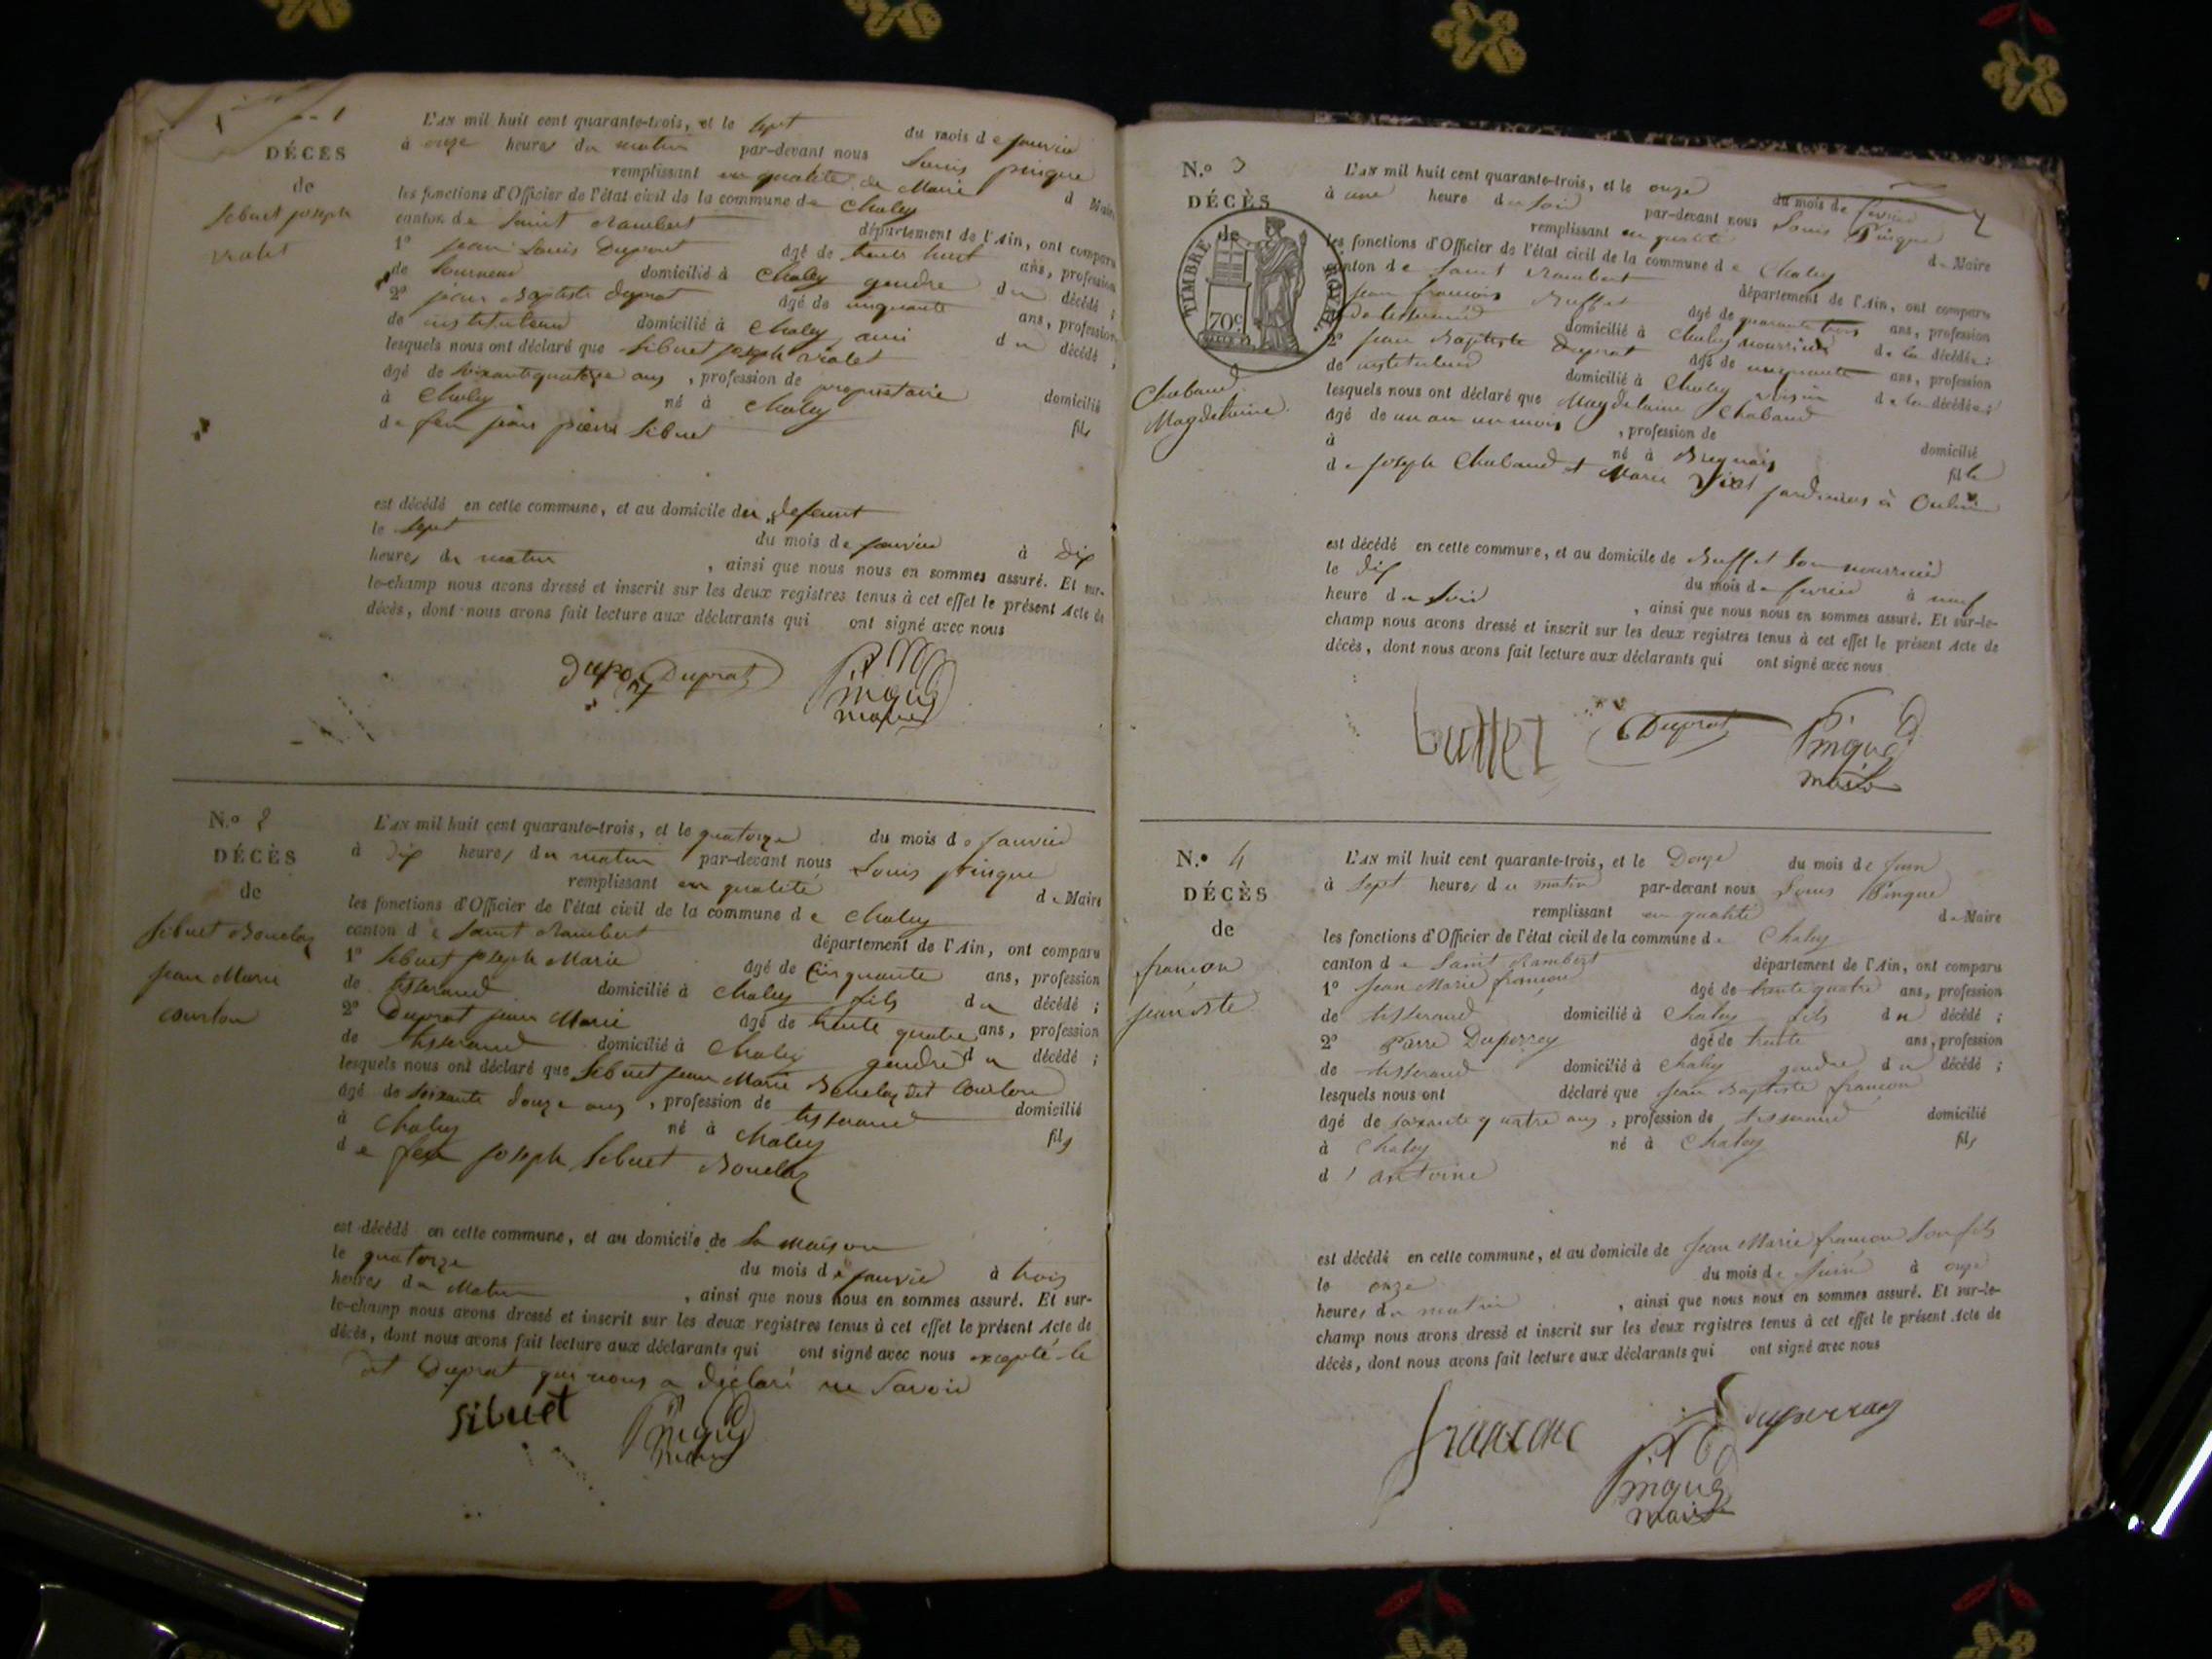 1
DÉCÈS
de
Sibuet joseph
violet
L'an mil huit cent quarante-trois, et le sept du mois de janvier
à onze heures du matin par-devant nous Louis pingue
remplissant en qualité de Maire d Maire
les fonctions d'Officier de l'état civil de la commune de Chaley
canton de Saint Rambert département de l'Ain, ont comparu
1° jean Louis Dupont âgé de trente huit ans, profession
de tourneur domicilié à Chaley gendre du décédé ;
2° jean Baptiste duprat âgé de cinquante ans, profession
de instituteur domicilié à Chaley ami du décédé ;
lesquels nous ont déclaré que Sibuet joseph violet
âgé de soixante quatorze ans, profession de propriétaire domicilié
à Chaley né à Chaley fils
de feu jean pierre Sibuet
est décédé en cette commune, et au domicile du defunt
le sept du mois de janvier à dix
heures du matin, ainsi que nous nous en sommes assuré. Et sur-
le-champ nous avons dressé et inscrit sur les deux registres tenus à cet effet le présent Acte de
décès, dont nous avons fait lecture aux déclarants qui ont signé avec nous
dupont Duprat Pingue
maire
N.° 2
DÉCÈS
de
Sibuet Bouclay
jean Marie
courton
L'an mil huit cent quarante-trois, et le quatorze du mois de janvier
à dix heures du matin par-devant nous Louis pingue
remplissant en qualité de Maire
les fonctions d'Officier de l'état civil de la commune de Chaley
canton de Saint Rambert département de l'Ain, ont comparu
1° Sibuet joseph Marie âgé de Cinquante ans, profession
de tisserand domicilié à Chaley fils du décédé ;
2° Duprat jean Marie âgé de trente quatre ans, profession
de tisserand domicilié à Chaley gendre du décédé ;
lesquels nous ont déclaré que Sibuet jean Marie Bouclay dit Courton
âgé de soixante douze ans, profession de tisserand domicilié
à Chaley né à Chaley fils
de feu joseph Sibuet Bouclay
est décédé en cette commune, et au domicile de Sa maison
le quatorze du mois de janvier à trois
heures du Matin, ainsi que nous nous en sommes assuré. Et sur-
le-champ nous avons dressé et inscrit sur les deux registres tenus à cet effet le présent Acte de
décès, dont nous avons fait lecture aux déclarants qui ont signé avec nous excepté le
dt Duprat qui nous a déclaré ne Savoir
Sibuet Pingue
maire
N.° 3
DÉCÈS
de
TIMBRE ROYAL.
70c
Chabaud
Magdelaine
L'an mil huit cent quarante-trois, et le onze du mois de fevrier
à une heure du soir par-devant nous Louis Pingue
remplissant en qualité de Maire
les fonctions d'Officier de l'état civil de la commune de Chaley
canton de Saint Rambert département de l'Ain, ont comparu
jean francois Buffet âgé de quarante trois ans, profession
de tisserand domicilié à Chaley nourricier de la décédée ;
2° jean Baptiste Duprat âgé de cinquante ans, profession
de instituteur domicilié à Chaley voisin de la décédée ;
lesquels nous ont déclaré que Magdelaine Chabaud
âgé de un an un mois, profession de domicilié
à né à Brignais fille
de joseph Chabaud et Marie jardiniers à Oulin
est décédé en cette commune, et au domicile de Buffet Son nourricier
le dix du mois de fevrier à neuf
heure du Soir, ainsi que nous nous en sommes assuré. Et sur-le-
champ nous avons dressé et inscrit sur les deux registres tenus à cet effet le présent Acte de
décès, dont nous avons fait lecture aux déclarants qui ont signé avec nous
buffet Duprat Pingue
maire
N.° 4
DÉCÈS
de
francon
jean Bte
L'an mil huit cent quarante-trois, et le Douze du mois de Juin
à Sept heures du matin par-devant nous Louis Pingue
remplissant en qualité de Maire
les fonctions d'Officier de l'état civil de la commune de Chaley
canton de Saint Rambert département de l'Ain, ont comparu
1° Jean Marie francon âgé de trente quatre ans, profession
de tisserand domicilié à Chaley fils du décédé ;
2° Pierre Duperray âgé de trente ans, profession
de tisserand domicilié à Chaley gendre du décédé ;
lesquels nous ont déclaré que Jean Baptiste francon
âgé de soixante quatre ans, profession de tisserand domicilié
à Chaley né à Chaley fils
d'antoine
est décédé en cette commune, et au domicile de Jean Marie francon Son fils
le onze du mois de Juin à onze
heures du matin, ainsi que nous nous en sommes assuré. Et sur-le-
champ nous avons dressé et inscrit sur les deux registres tenus à cet effet le présent Acte de
décès, dont nous avons fait lecture aux déclarants qui ont signé avec nous
francon duperray
Pingue
maire